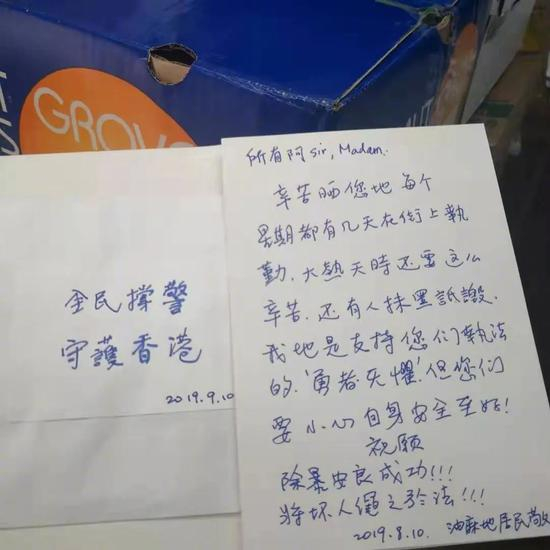 GROV
全民撐警
守護香港
2019.9.10
所有阿sir, Madam.
辛苦晒您地每个
星期都有几天在街上執
勤.大熱天時还要这么
辛苦.还有人抹黑詆譭.
我地是支持您们執法
的.'勇者无懼'.但您们
要小心自身安全至好!
祝願
除暴安良成功!!!
将坏人绳之於法!!!
2019.8.10. 油麻地居民敬